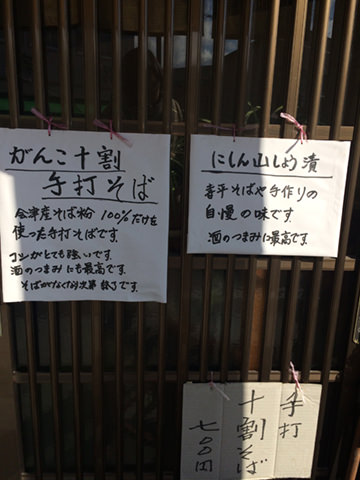 がんこ十割
手打そば
会津産そば粉100%だけを
使った手打そばです。
コシがとても強いです。
酒のつまみにも最高です。
そばがなくなり次第終了です。
にしん山しょう漬
喜平そばや手作りの
自慢の味です
酒のつまみに最高です。
手打
十割そば
七〇〇円